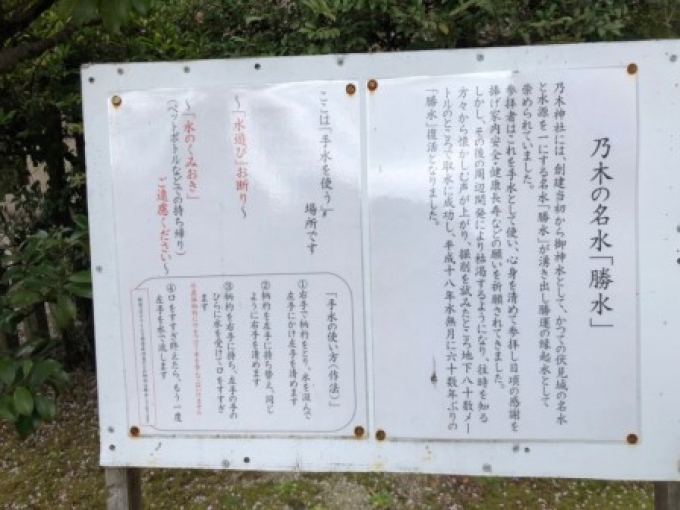 乃木の名水「勝水」
乃木神社には、創建当初から御神水として、かつての伏見城の名水
と水源を一にする名水「勝水」が湧き出し勝運の縁起水として
崇められていました。
参拝者はこれを手水として使い、心身を清めて参拝し日頃の感謝を
捧げ家内安全・健康長寿などの願いを祈願されてきました。
しかし、その後の周辺開発により枯渇するようになり、往時を知る
方々から懐かしむ声が上がり、掘削を試みたところ地下八十数メー
トルのところで取水に成功し、平成十八年水無月に六十数年ぶりの
「勝水」復活となりました。
ここは「手水を使う」
場所です
～「水遊び」お断り～
～「水のくみおき」
(ペットボトルなどでの持ち帰り)
ご遠慮ください～
「手水の使い方(作法)」
①右手で柄杓をとり、水を汲んで
左手にかけ左手を清めます
②柄杓を左手に持ち替え、同じ
ように右手を清めます
③柄杓を右手に持ち、左手の手の
ひらに水を受けて口をすすぎ
ます
④口をすすぎ終えたら、もう一度
左手を水で流します